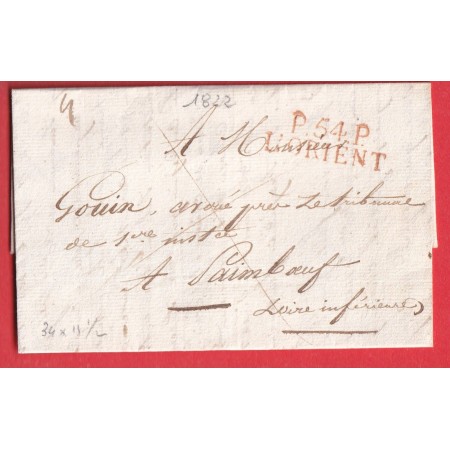 1822
P.54.P.
L'ORIENT
A Monsieur
Gouin, avoué près le tribunal
de 1ère instce
A Paimbœuf
Loire inférieure
34 x 11 1/2